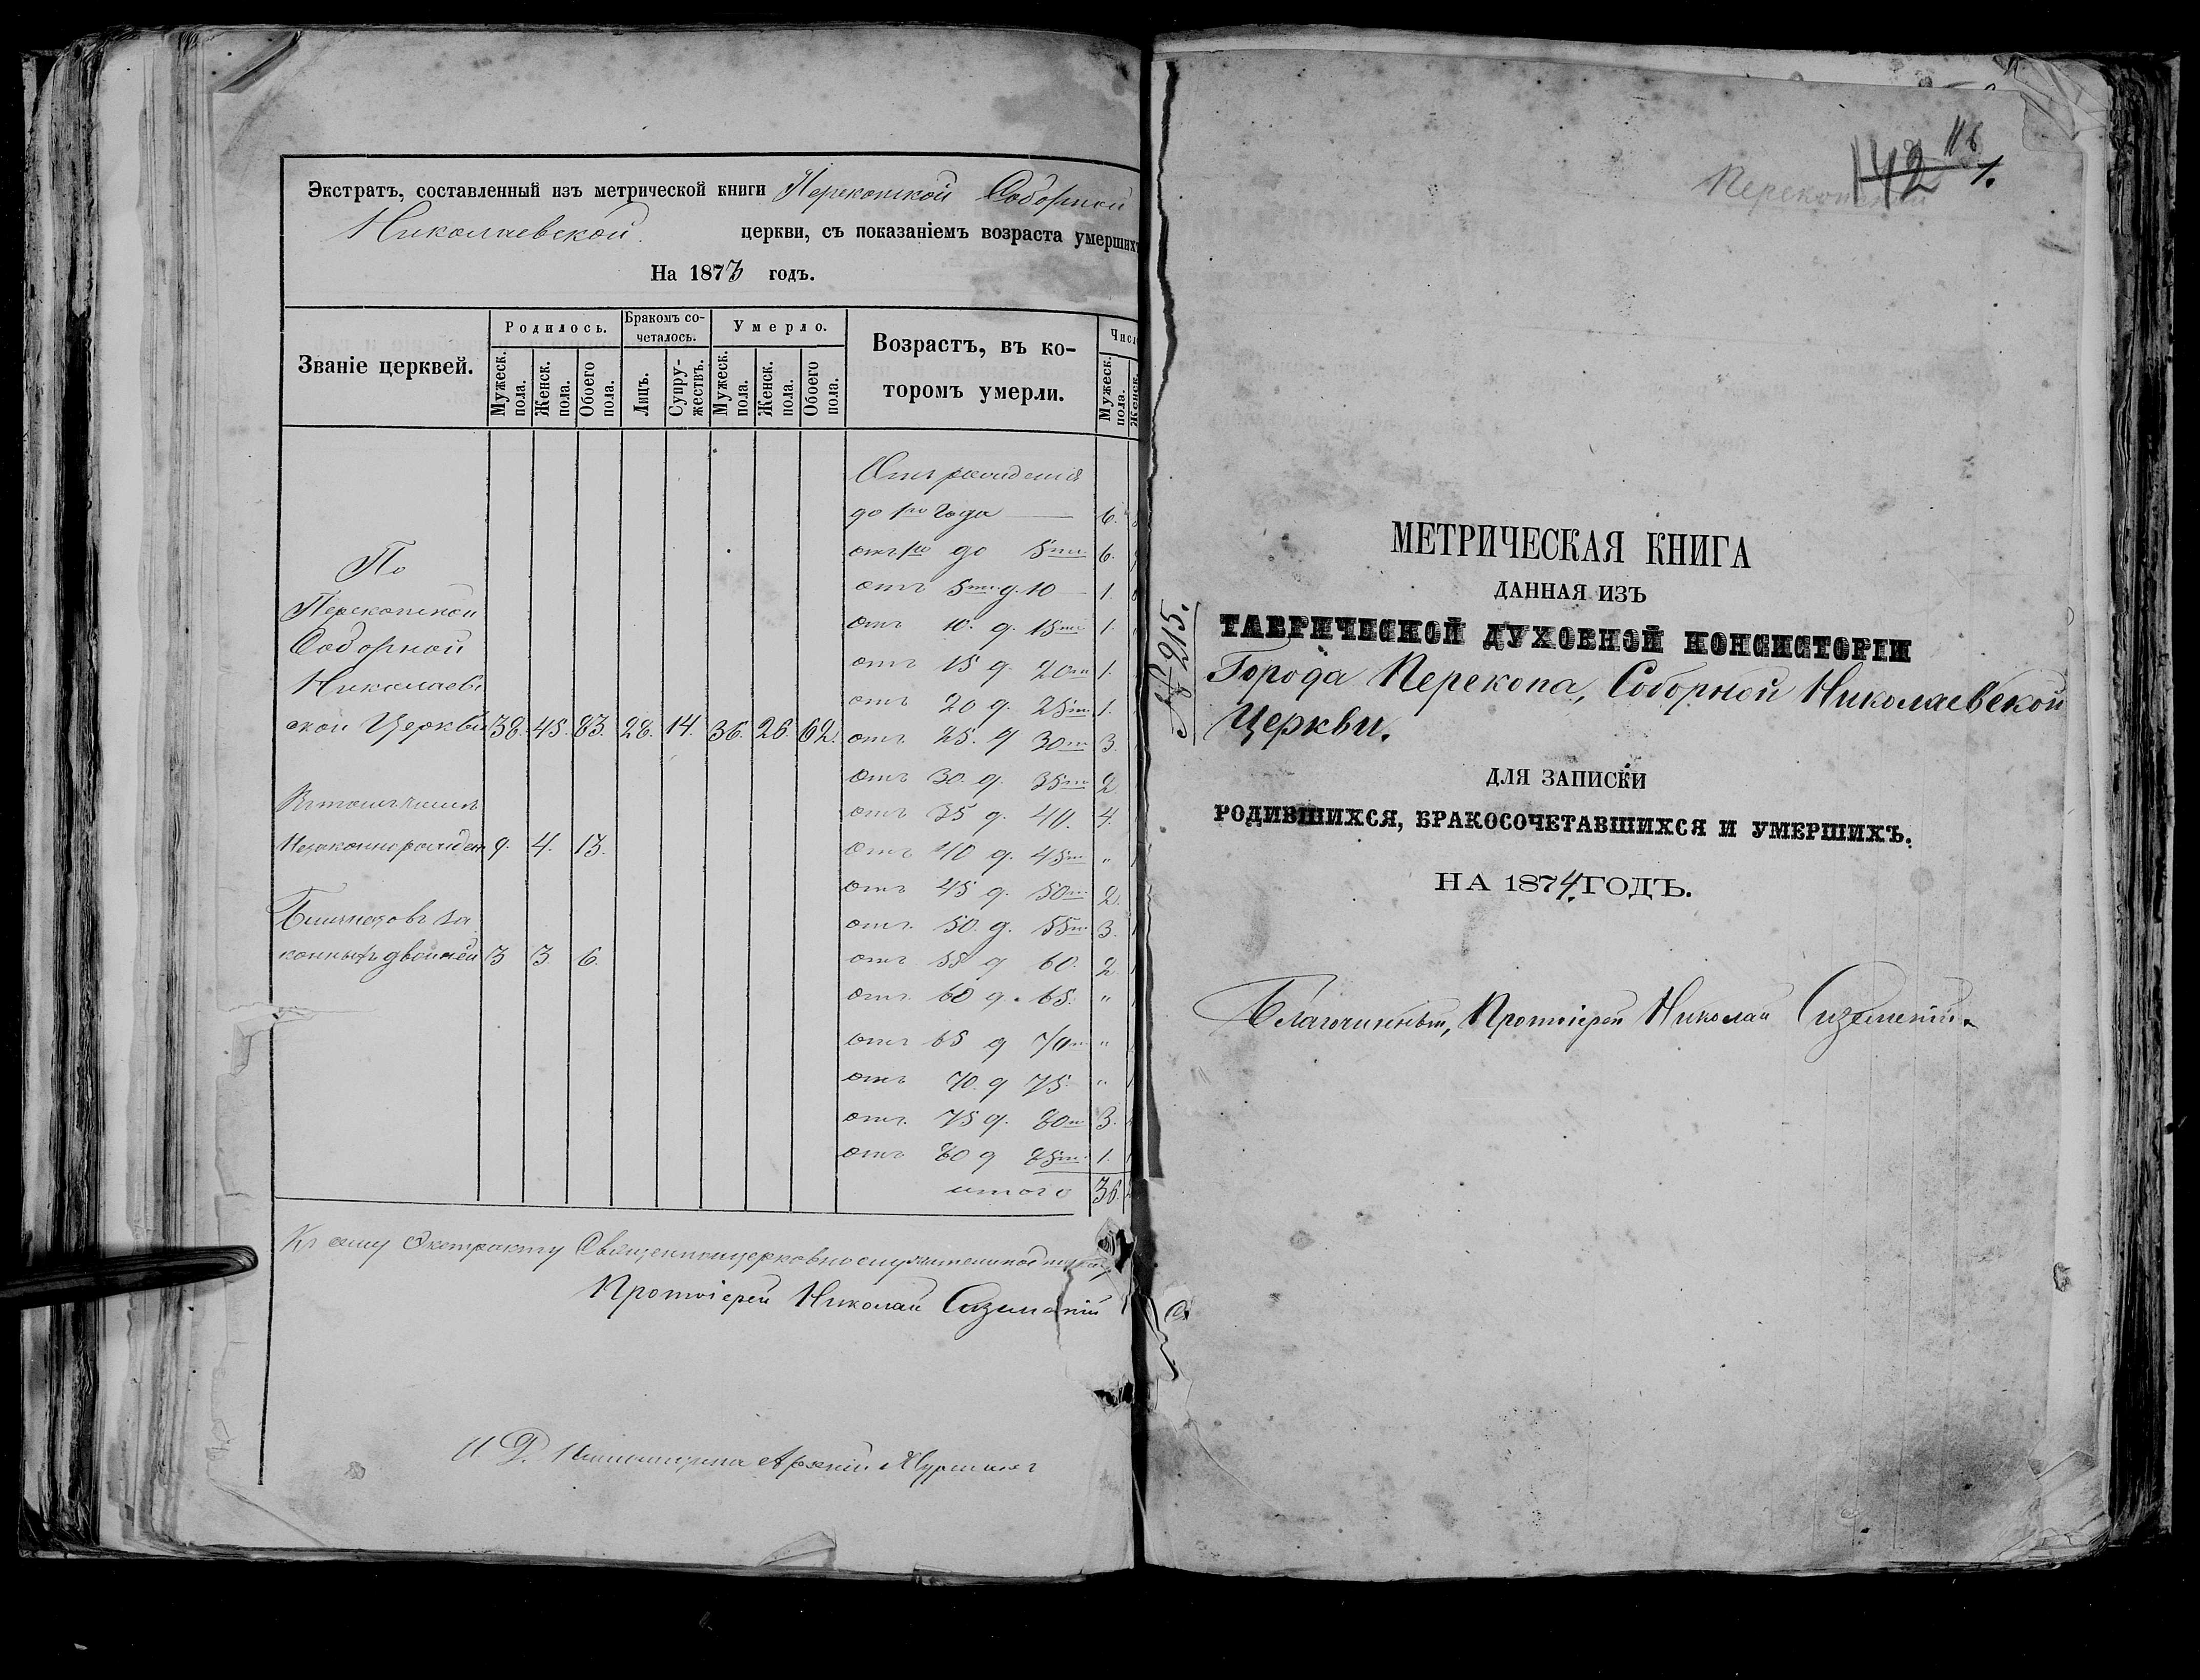 Экстратъ, составленный изъ метрической книги Перекопской Соборной
Николаевской церкви, съ показаніемъ возраста умершихъ
На 1873 годъ.
Званіе церквей.
Родилось.
Бракомъ со-
четалось.
Умерло.
Возрастъ, въ ко-
торомъ умерли.
Числ
Мужеск. пола.
Женск. пола.
Обоего пола.
Лицъ.
Супру-
жествъ.
Мужеск. пола.
Женск. пола.
Обоего пола.
Мужеск. пола.
Женск.
Отъ рожденія
до 1го года 6.
отъ 1го до 5ти 6.
отъ 5ти д. 10 1.
отъ 10. д. 15ти 1.
отъ 15 д. 20ти 1.
отъ 20 д. 25ти 1.
По
Перекопской
Соборной
Николаев
ской Церкви 38. 45. 83. 28. 14. 36. 26. 62.
отъ 25. д 30ти 3.
отъ 30. д. 35ти 2
отъ 35 д. 40. 4.
Въ томъ числѣ
Незаконнорожден 9. 4. 13.
отъ 40 д. 45ти "
отъ 45 д. 50ти 2.
отъ 50. д. 55ти 3.
Близнецовъ за
конныхъ двойней 3 3 6.
отъ 55 д 60. 2.
отъ 60 д. 65. "
отъ 65 д 70ти "
отъ 70. д 75. "
отъ 75 д. 80ти 3.
отъ 80 д 85ти 1.
итого 36.
Къ сему Экстракту Священноцерковнослужители
Протоіерей Николай Сизминскій
И. Д. Псаломщика Арсеній
Перекопской
142
116
1.
МЕТРИЧЕСКАЯ КНИГА
ДАННАЯ ИЗЪ
ТАВРИЧЕСКОЙ ДУХОВНОЙ КОНСИСТОРІИ
№ 215.
Города Перекопа, Соборной Николаевской
Церкви.
ДЛЯ ЗАПИСКИ
РОДИВШИХСЯ, БРАКОСОЧЕТАВШИХСЯ И УМЕРШИХЪ.
НА 1874. ГОДЪ.
Благочинный, Протоіерей Николай